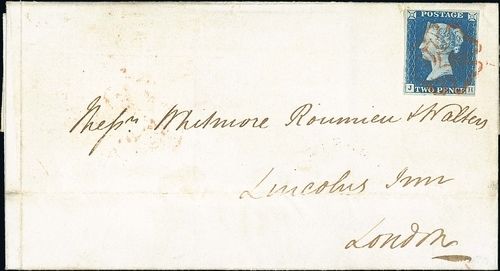 POSTAGE
TWO PENCE
J H
Messrs Whitmore Roumieu & Walters
Lincolns Inn
London